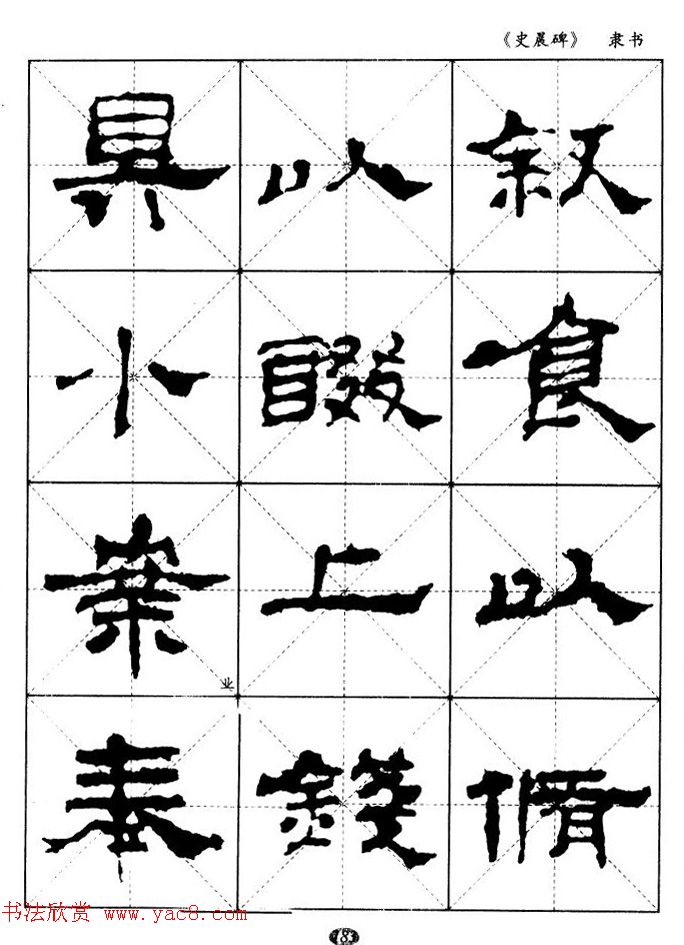 《史晨碑》 隶书
具以叙
小醊食
業上以
业
奉錢脩
书法欣赏 www.yac8.com
183